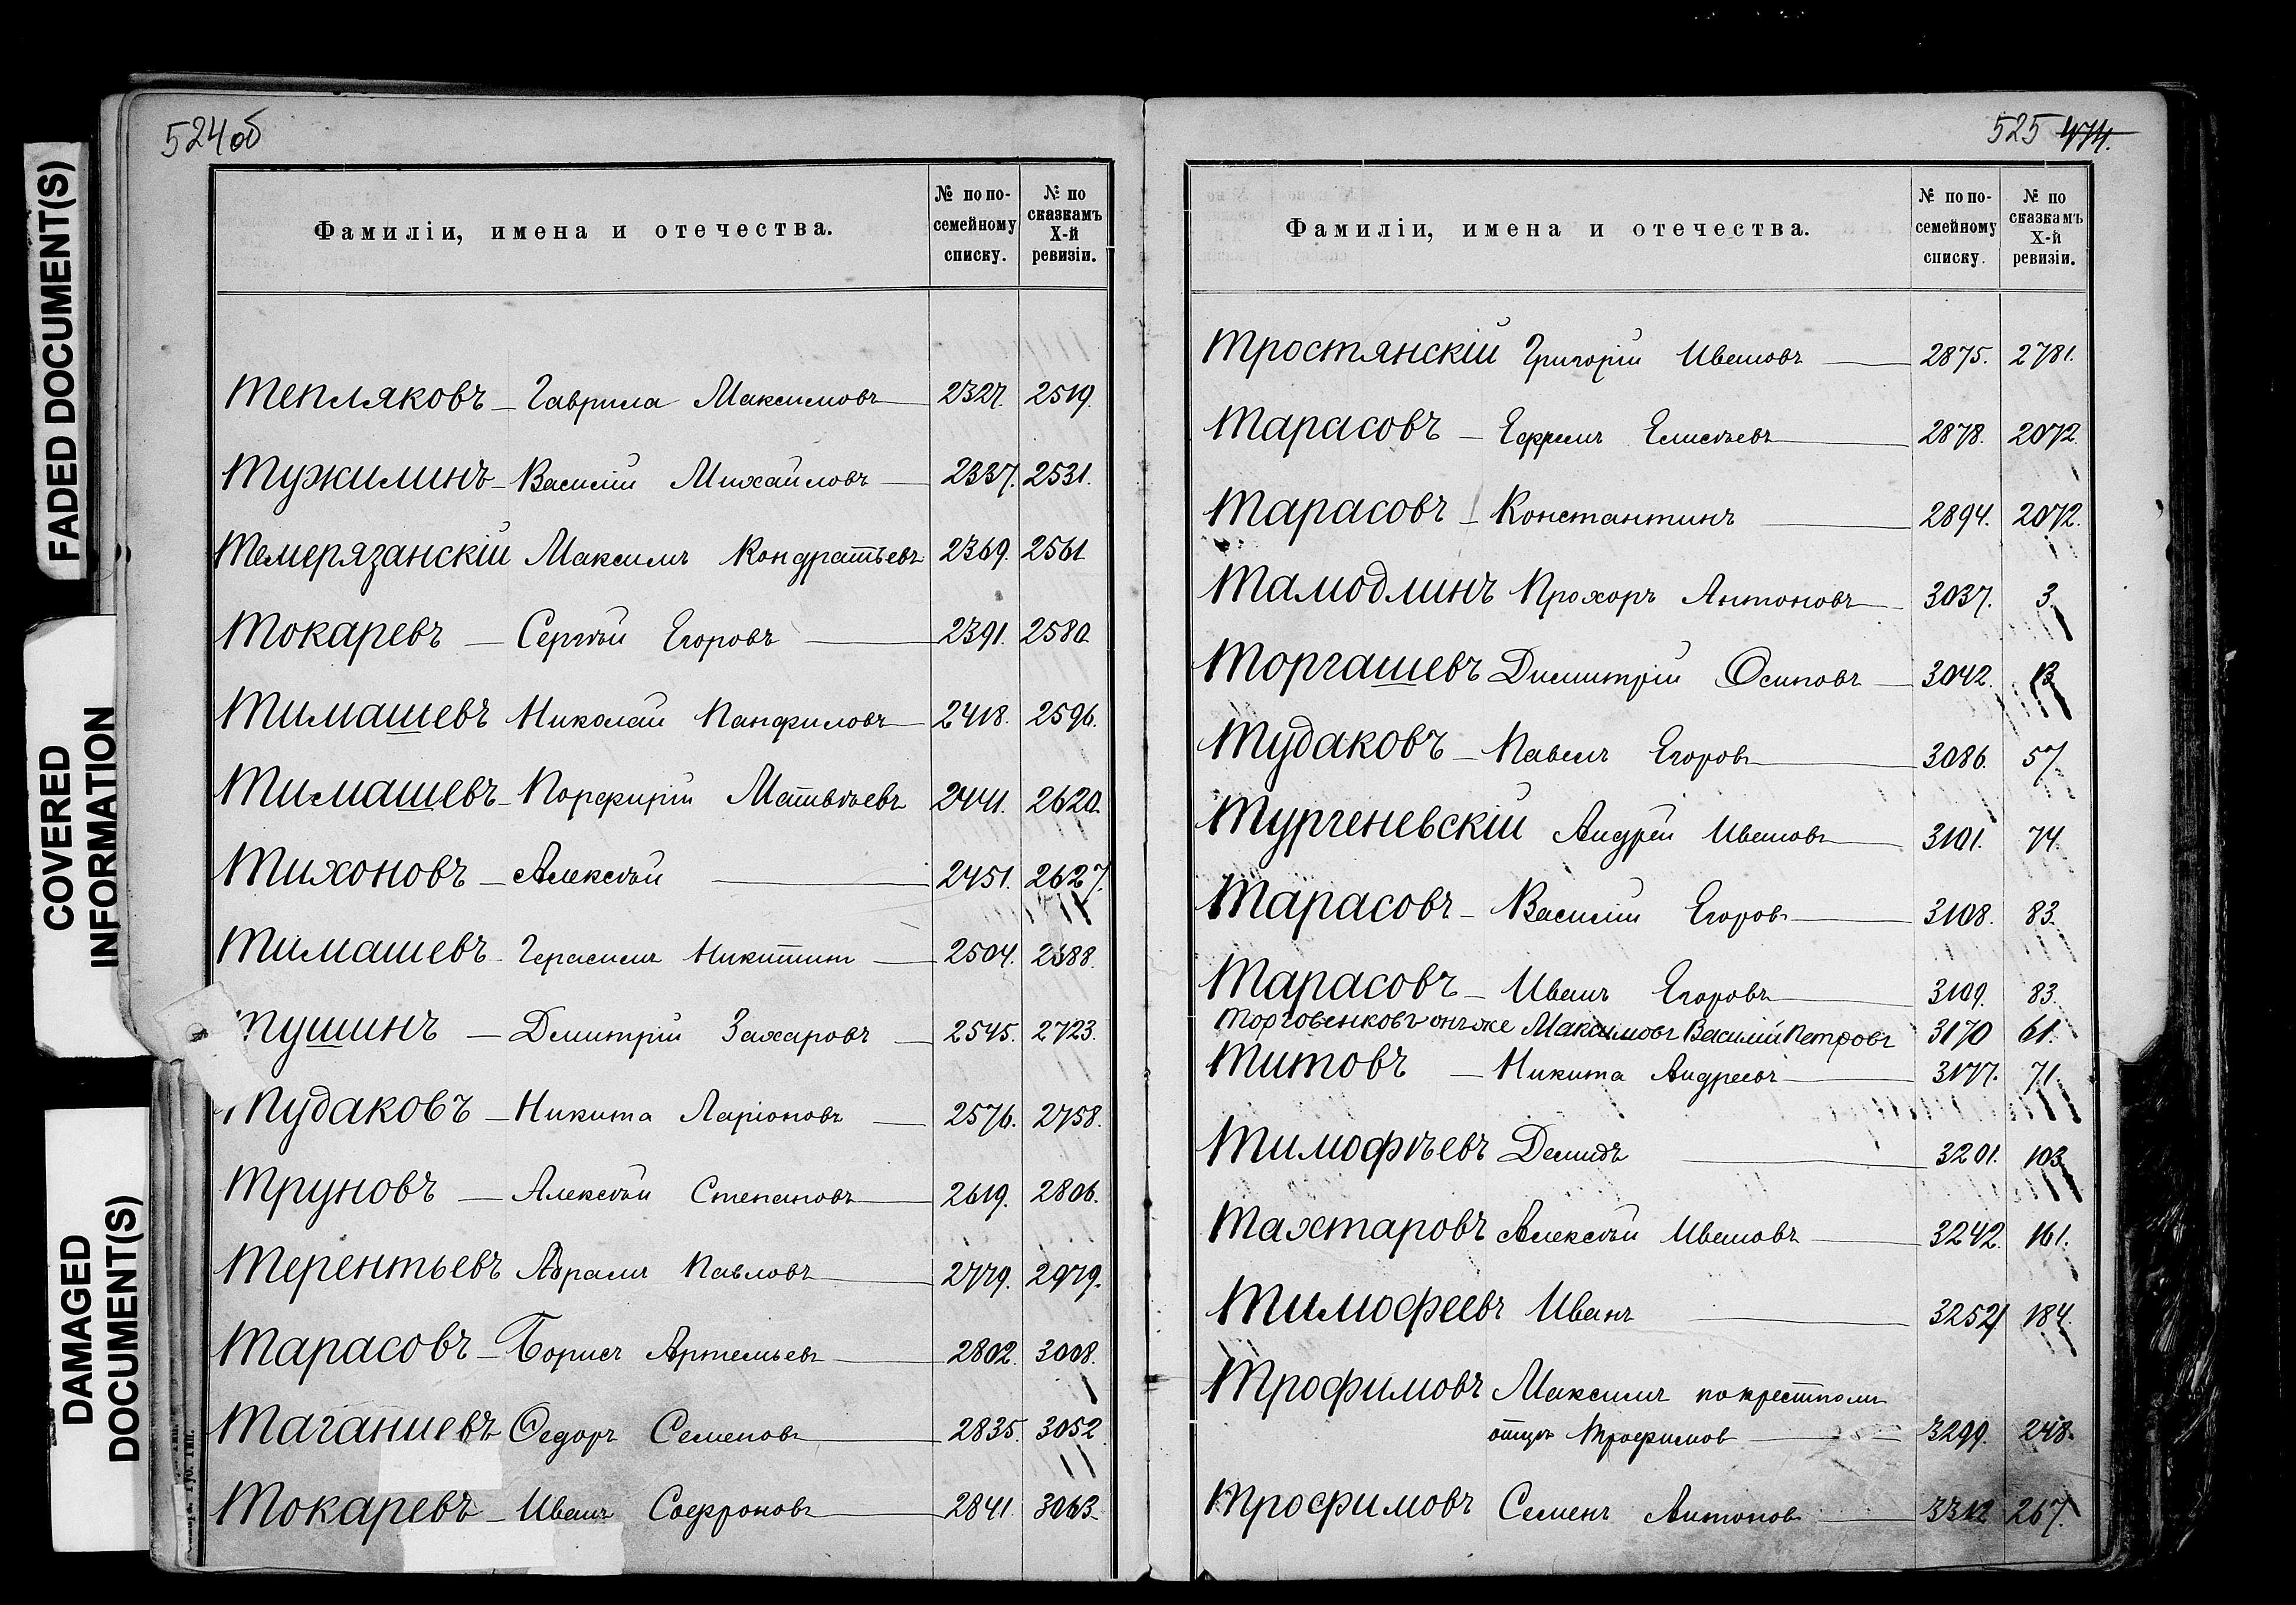 FADED DOCUMENT(S)
COVERED
INFORMATION
DAMAGED
DOCUMENT(S)
524об
Фамиліи, имена и отечества. № по по-семейному списку. № по сказкамъ X-й ревизіи.
Тепляковъ – Гаврила Максимовъ 2327. 2519.
Тужилинъ – Василій Михайловъ 2337. 2531.
Темерязанскій Максимъ Кондратьевъ 2369. 2561
Токаревъ – Сергѣй Егоровъ 2391. 2580.
Тимашевъ Николай Панфиловъ 2418. 2596.
Тимашевъ – Порфирій Матвѣевъ 2441. 2620.
Тихоновъ – Алексѣй 2451. 2627.
Тимашевъ Герасимъ Никитин 2504. 2688.
Тушинъ – Дмитрій Захаровъ 2545. 2723.
Тудаковъ – Никита Ларіоновъ 2576. 2758.
Труновъ – Алексѣй Степановъ 2619. 2806.
Терентьевъ Абрамъ Павловъ 2779. 2979.
Тарасовъ – Борисъ Артемьевъ 2802. 3008.
Таганцевъ Ѳедоръ Семеновъ 2835. 3052.
Токаревъ – Иванъ Софроновъ 2841. 3063.
525 474.
Фамиліи, имена и отечества. № по по-семейному списку. № по сказкамъ X-й ревизіи.
Тростянскій Григорій Ивановъ 2875. 2781.
Тарасовъ – Ефремъ Елисѣевъ 2878. 2072.
Тарасовъ – Константинъ 2894. 2072.
Тамодлинъ Прохоръ Антоновъ 3037. 3.
Торгашевъ Димитрій Осиповъ 3042. 13
Тудаковъ – Павелъ Егоровъ 3086. 57
Тургеневскій Андрей Ивановъ 3101. 74.
Тарасовъ – Василій Егоровъ 3108. 83.
Тарасовъ – Иванъ Егоровъ 3109. 83.
Торговенковъ онъ же Максимовъ Василій Петровъ 3170 61.
Титовъ – Никита Андреевъ 3177. 71
Тимофѣевъ Демидъ 3201. 103
Тахтаровъ Алексѣй Ивановъ 3242. 161.
Тимофеевъ Иванъ 3252 184.
Трофимовъ Максимъ по крестному
отцу Трофимов 3299. 248.
Трофимовъ Семенъ Антонов 3312 267.